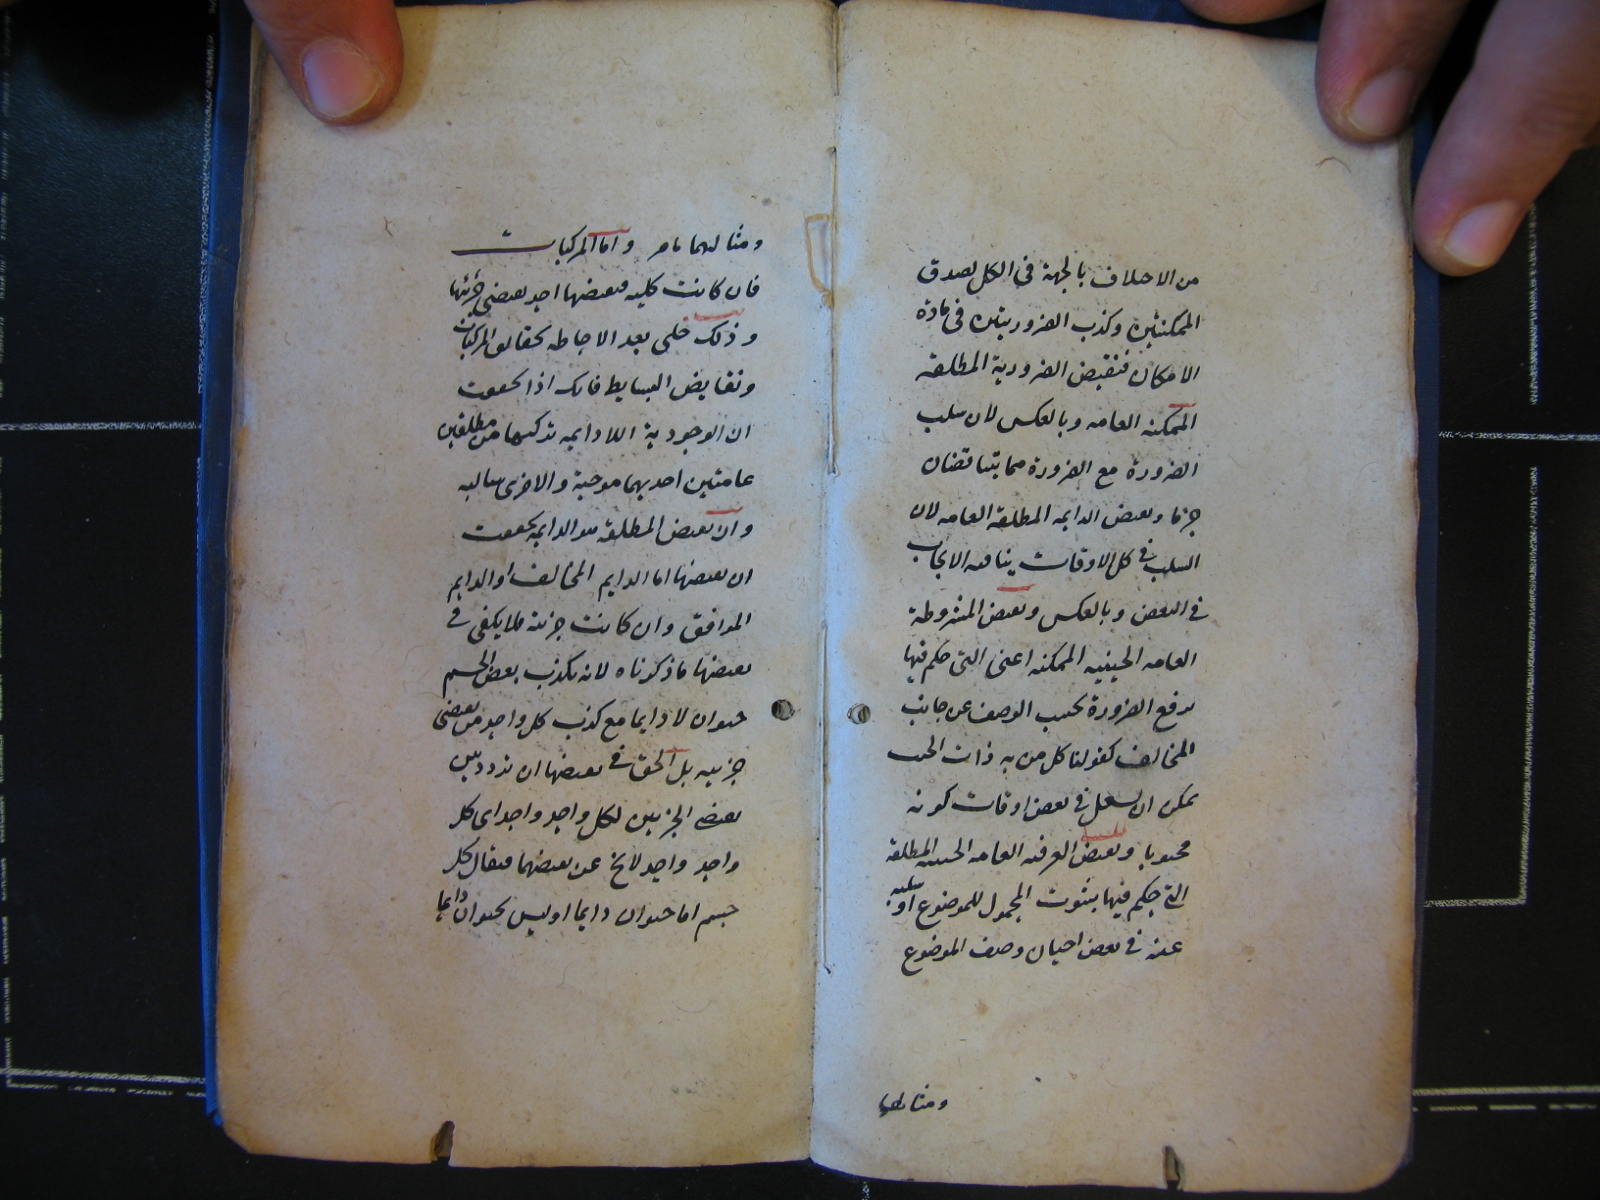 من الاختلاف بالجهة في الكل لصدق
الممكنتين وكذب الضروريتين في مادة
الامكان فنقيض الضرورية المطلقة
الممكنة العامه وبالعكس لان سلب
الضرورة مع الضرورة مما يتناقضان
جزما ونقيض الدايمه المطلقة العامه لان
السلب في كل الاوقات ينافيه الايجاب
في البعض وبالعكس ونقيض المشروطة
العامه الحينيه الممكنه اعنى التى حكم فيها
برفع الضرورة بحسب الوصف عن جانب
المخالف كقولنا كل من به ذات الجنب
يمكن ان يسعل في بعض اوقات كونه
مجنوبا ونقيض العرفيه العامه الحينيه المطلقة
التى حكم فيها بثبوت المحمول للموضوع او سلبه
عنه في بعض احيان وصف الموضوع
ومثالهما
ومثالهما مامر واما المركبات
فان كانت كليه فنقيضها احد نقيضى جزئيها
وذلك جلى بعد الاحاطه بحقايق المركبات
ونقايض البسايط فانك اذا تحققت
ان الوجودية اللادايمه تركيبها من مطلقتين
عامتين احديهما موجبة والاخرى سالبه
وان نقيض المطلقة هو الدايمه تحققت
ان نقيضها اما الدايم المخالف او الدايم
الموافق وان كانت جزئية فلا يكفى في
نقيضها ما ذكرناه لانه يكذب بعض الجسم
حيوان لا دايما مع كذب كل واحد من نقيضى
جزييه بل الحق في نقيضها ان يردد بين
نقيضى الجزيين لكل واحد واحد اى كل
واحد واحد لايخ عن نقيضهما فيقال كل
جسم اما حيوان دايما او ليس بحيوان دايما